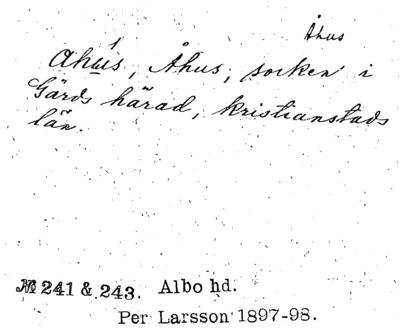 Åhus
Ahús, Åhus, socken i
Gärds härad, kristianstads
län.
№ 241 & 243. Albo hd.
Per Larsson 1897-98.